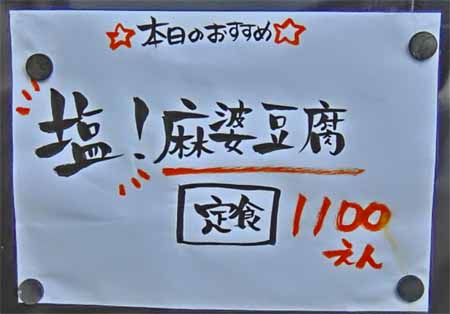 ☆本日のおすすめ☆
塩!麻婆豆腐
定食 1100
えん